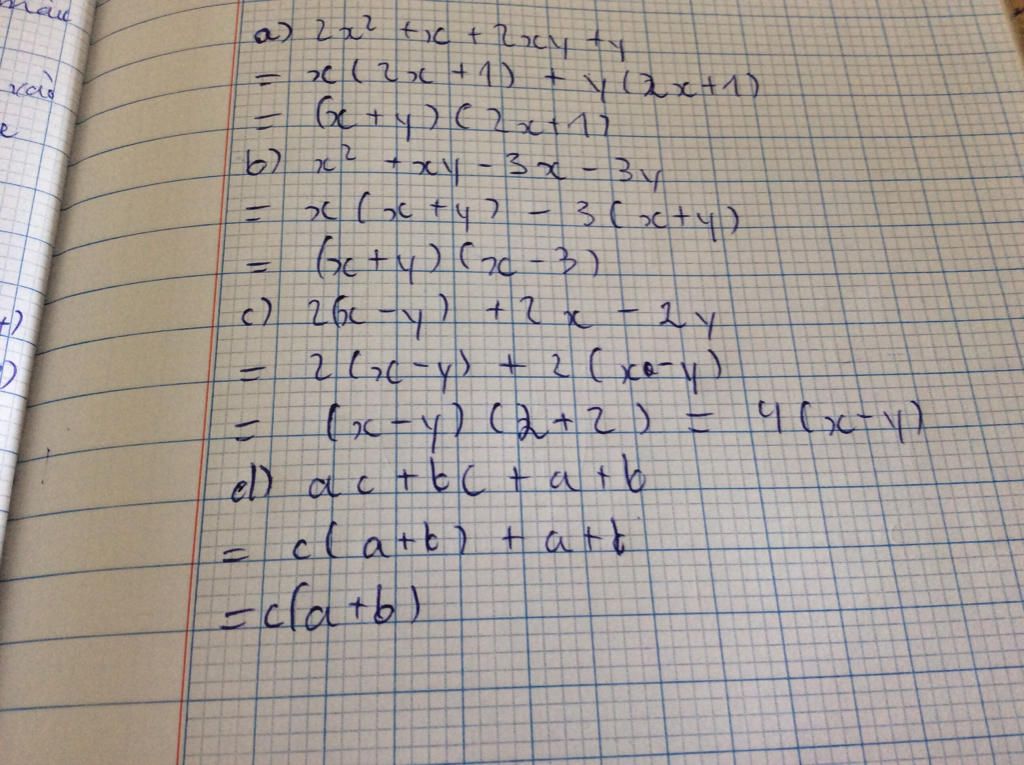 màu
xài
e
+)
)
a) 2x² + x + 2xy + y
= x(2x + 1) + y(2x+1)
= (x + y)(2x+1)
b) x² + xy - 3x - 3y
= x(x + y) - 3(x+y)
= (x+y)(x - 3)
c) 2(x - y) + 2x - 2y
= 2(x - y) + 2(x - y)
= (x - y)(2 + 2) = 4(x - y)
d) ac + bc + a + b
= c(a+b) + a + b
= c(a+b)